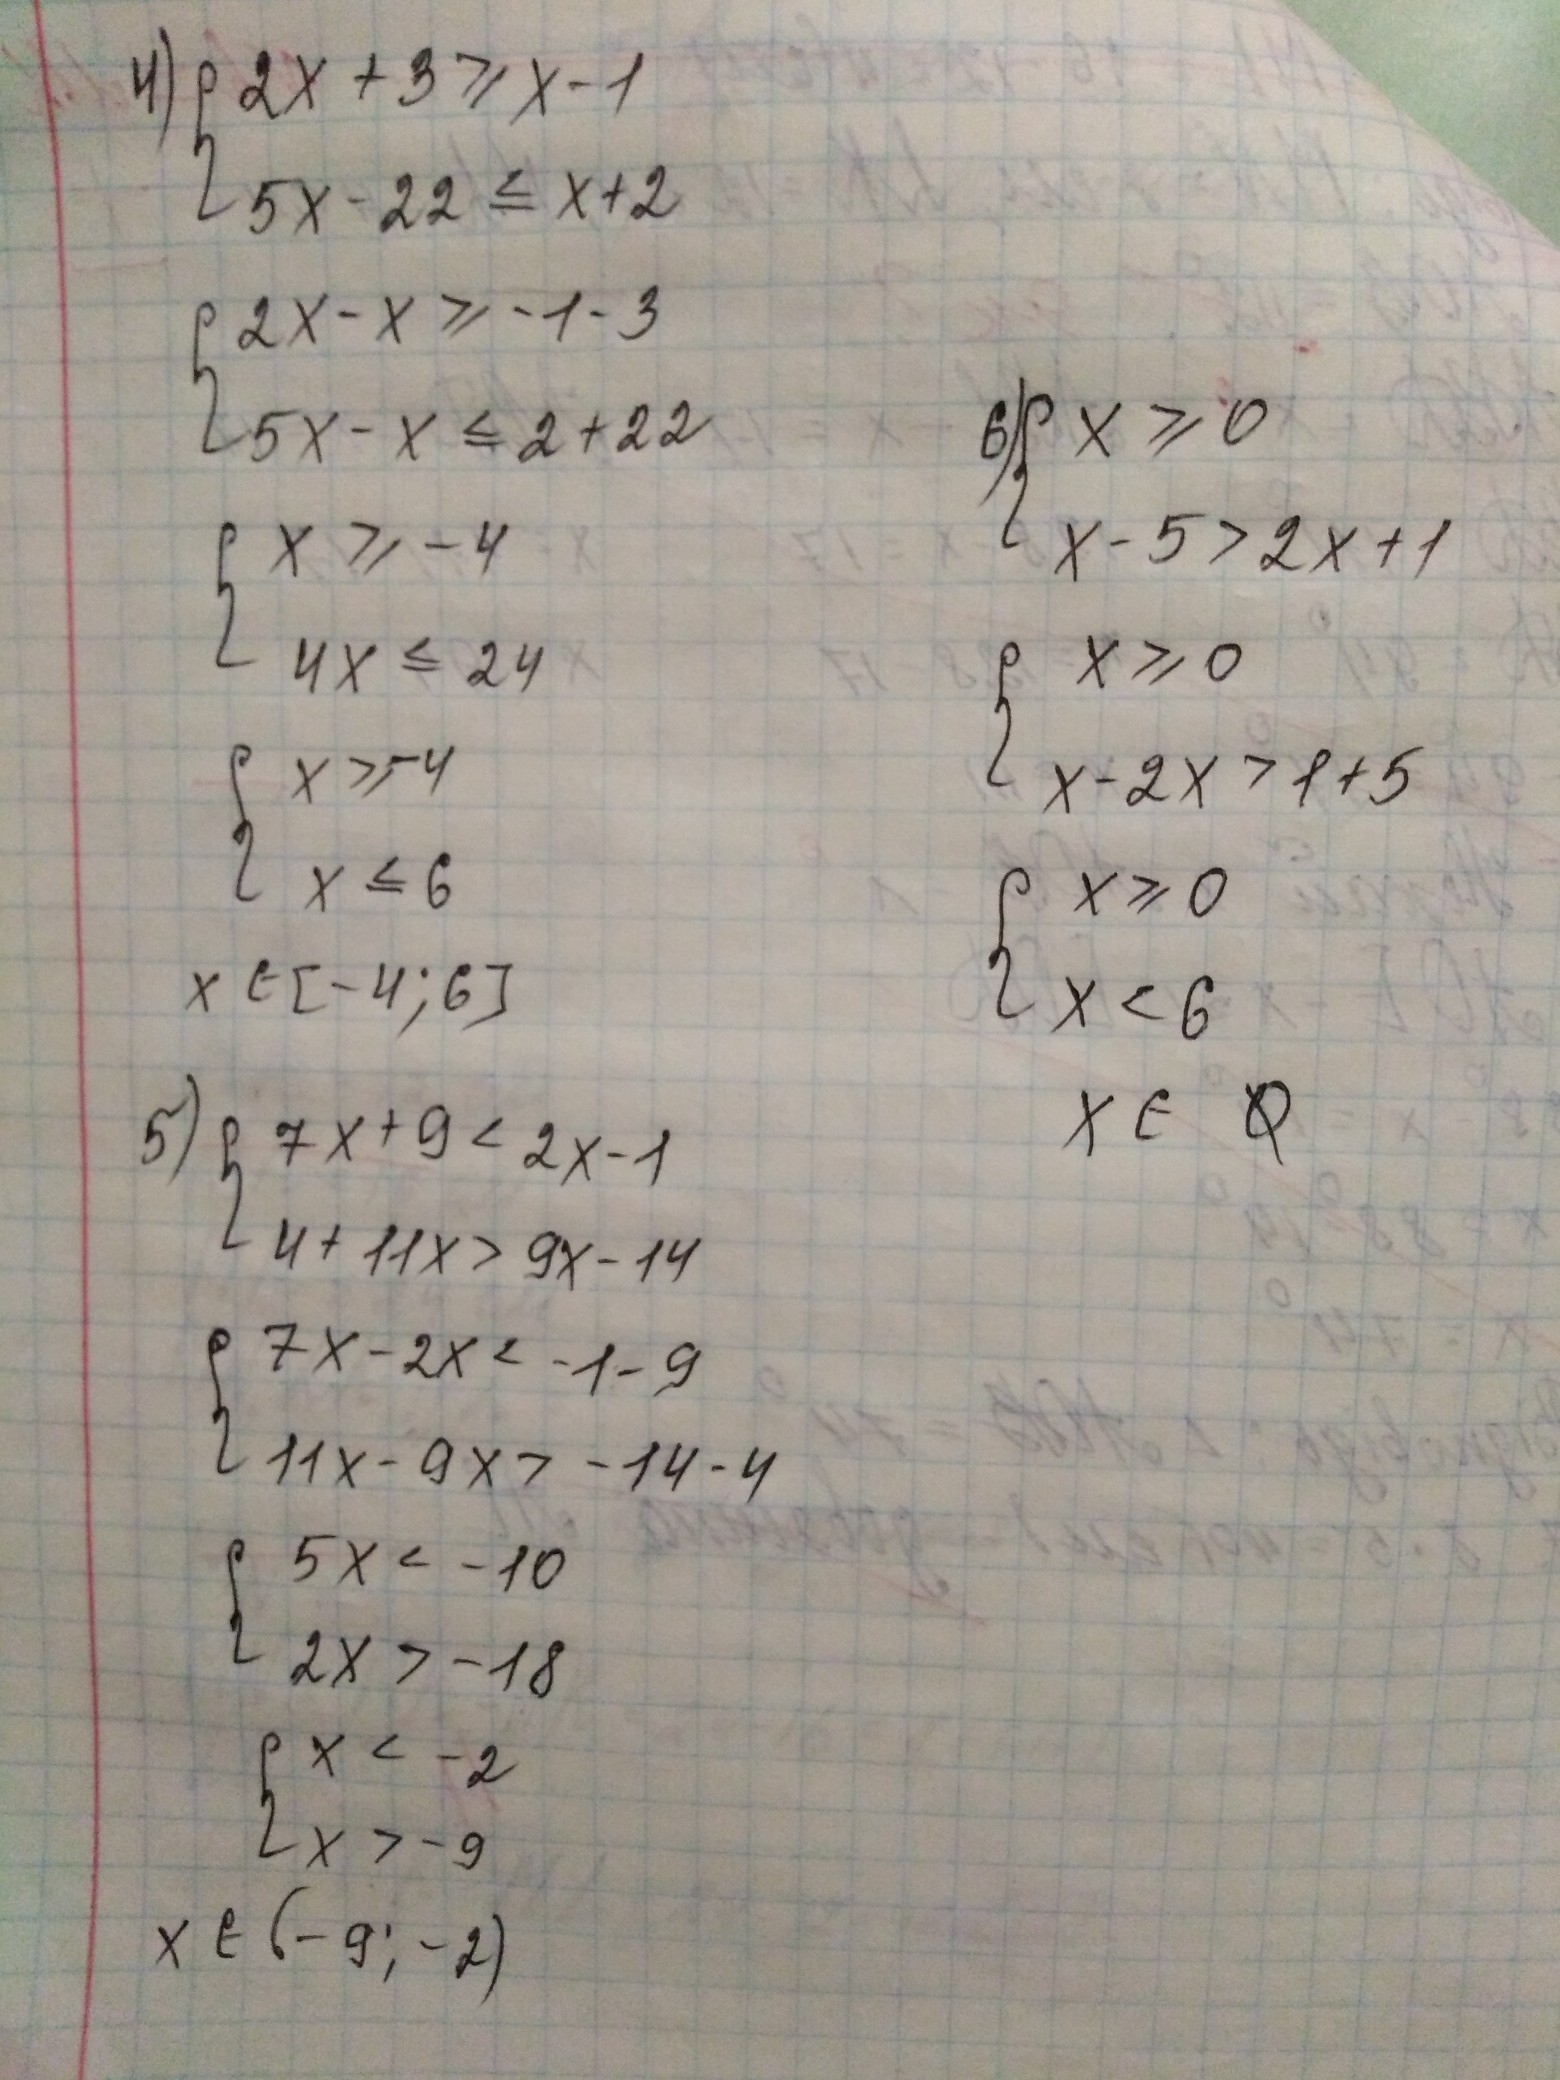 4) { 2x + 3 ⩾ x - 1
5x - 22 ≤ x + 2
{ 2x - x ⩾ -1 - 3
5x - x ≤ 2 + 22
{ x ⩾ -4
4x ≤ 24
{ x ⩾ -4
x ≤ 6
x ∈ [-4; 6]
5) { 7x + 9 < 2x - 1
4 + 11x > 9x - 14
{ 7x - 2x < -1 - 9
11x - 9x > -14 - 4
{ 5x < -10
2x > -18
{ x < -2
x > -9
x ∈ (-9; -2)
6) { x ⩾ 0
x - 5 > 2x + 1
{ x ⩾ 0
x - 2x > 1 + 5
{ x ⩾ 0
x < 6
x ∈ ∅